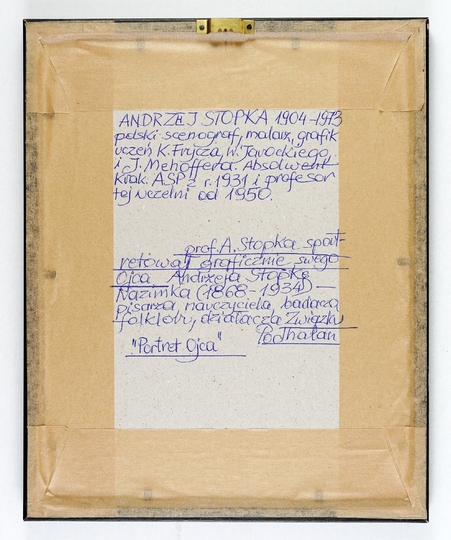 ANDRZEJ STOPKA 1904-1973
polski scenograf, malarz, grafik
uczeń K. Frycza, W. Jarockiego
i J. Mehoffera. Absolwent
Krak. ASP z r. 1931 i profesor
tej uczelni od 1950.
prof. A. Stopka sport-
retował graficznie swego
Ojca Andrzeja Stopkę
Nazimka (1868-1934) —
pisarza nauczyciela, badacza
folkloru, działacza Związku
Podhalan
"Portret Ojca"